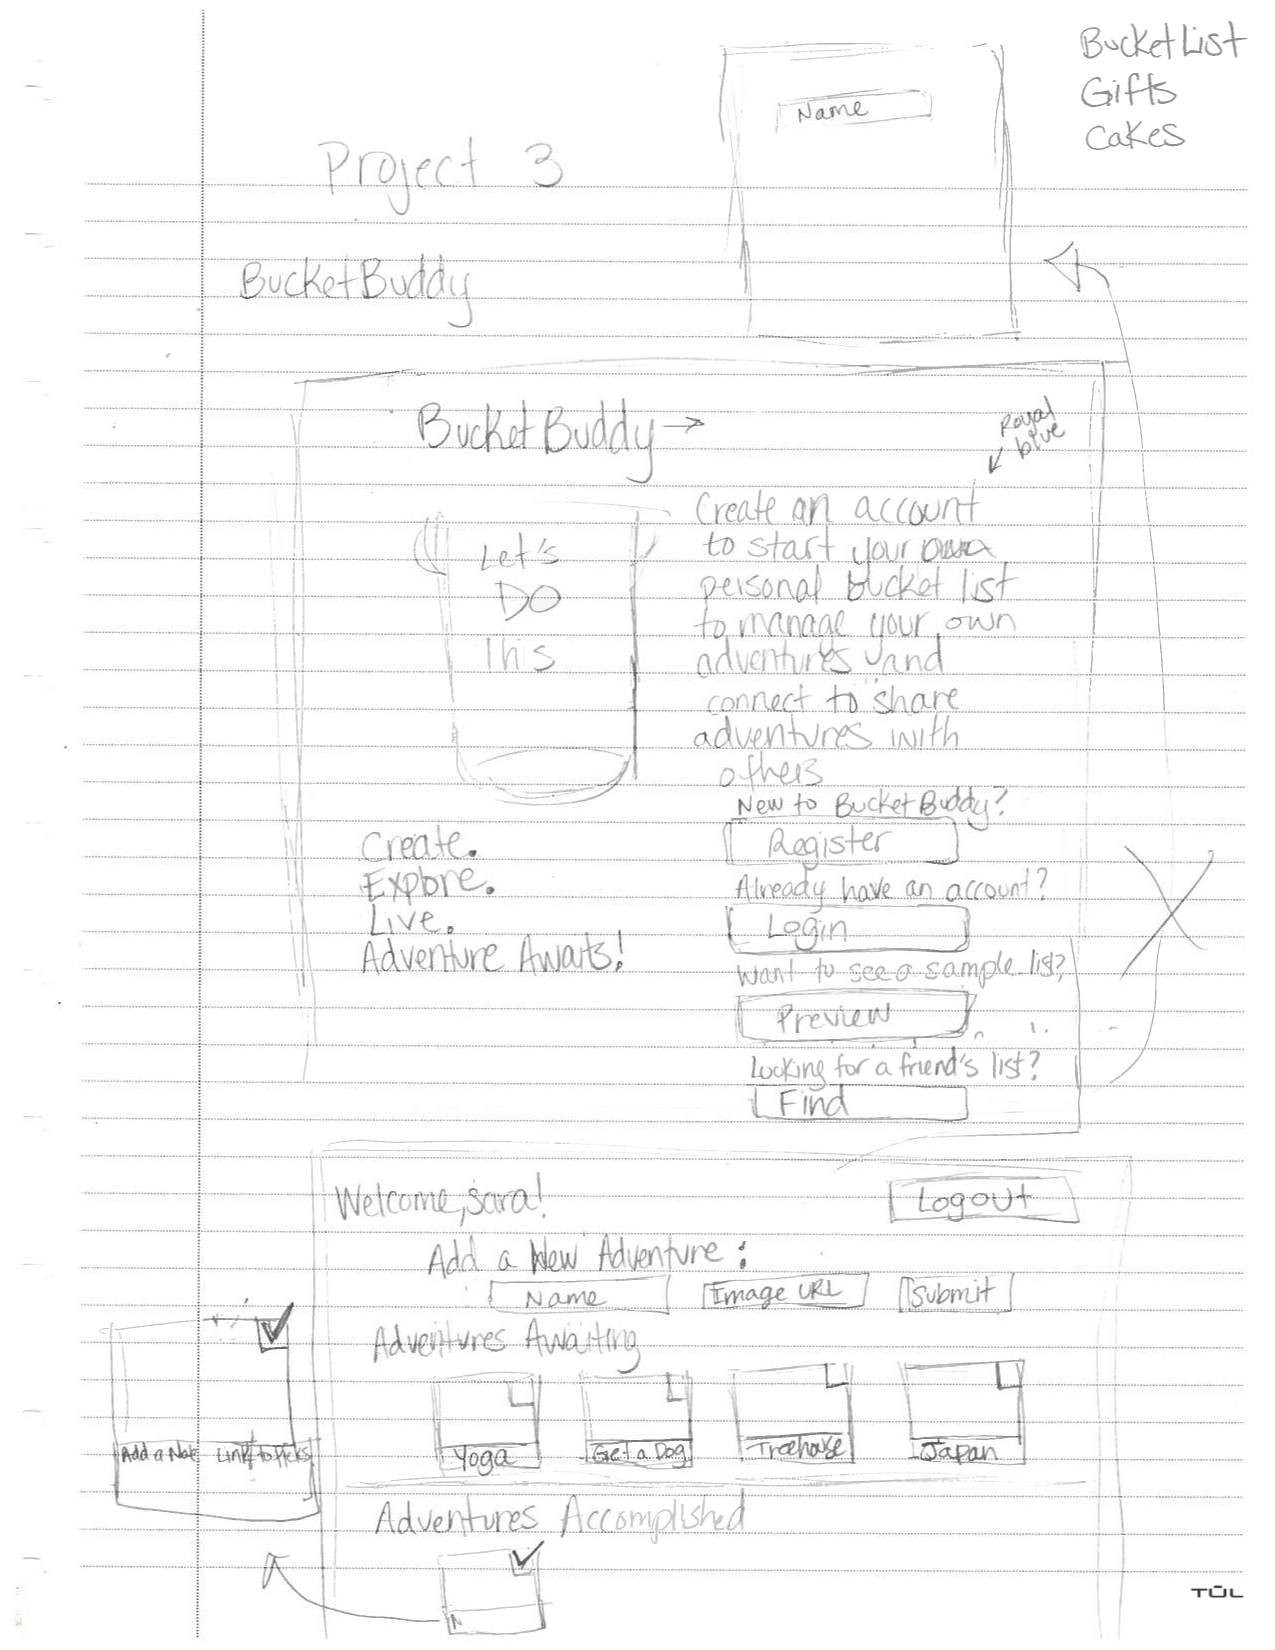 BucketList
Gifts
Cakes
Name
Project 3
BucketBuddy
BucketBuddy →
Royal
blue
Let's
DO
This
Create an account
to start your own
personal bucket list
to manage your own
adventures and
connect to share
adventures with
others
New to BucketBuddy?
Register
Already have an account?
Login
Want to see a sample list?
Preview
Looking for a friend's list?
Find
Create.
Explore.
Live.
Adventure Awaits!
Welcome, sara!
Logout
Add a New Adventure:
Name Image URL Submit
Adventures Awaiting
Yoga Get a Dog Treehouse Japan
Add a Note Link to Picks
Adventures Accomplished
N
TŪL